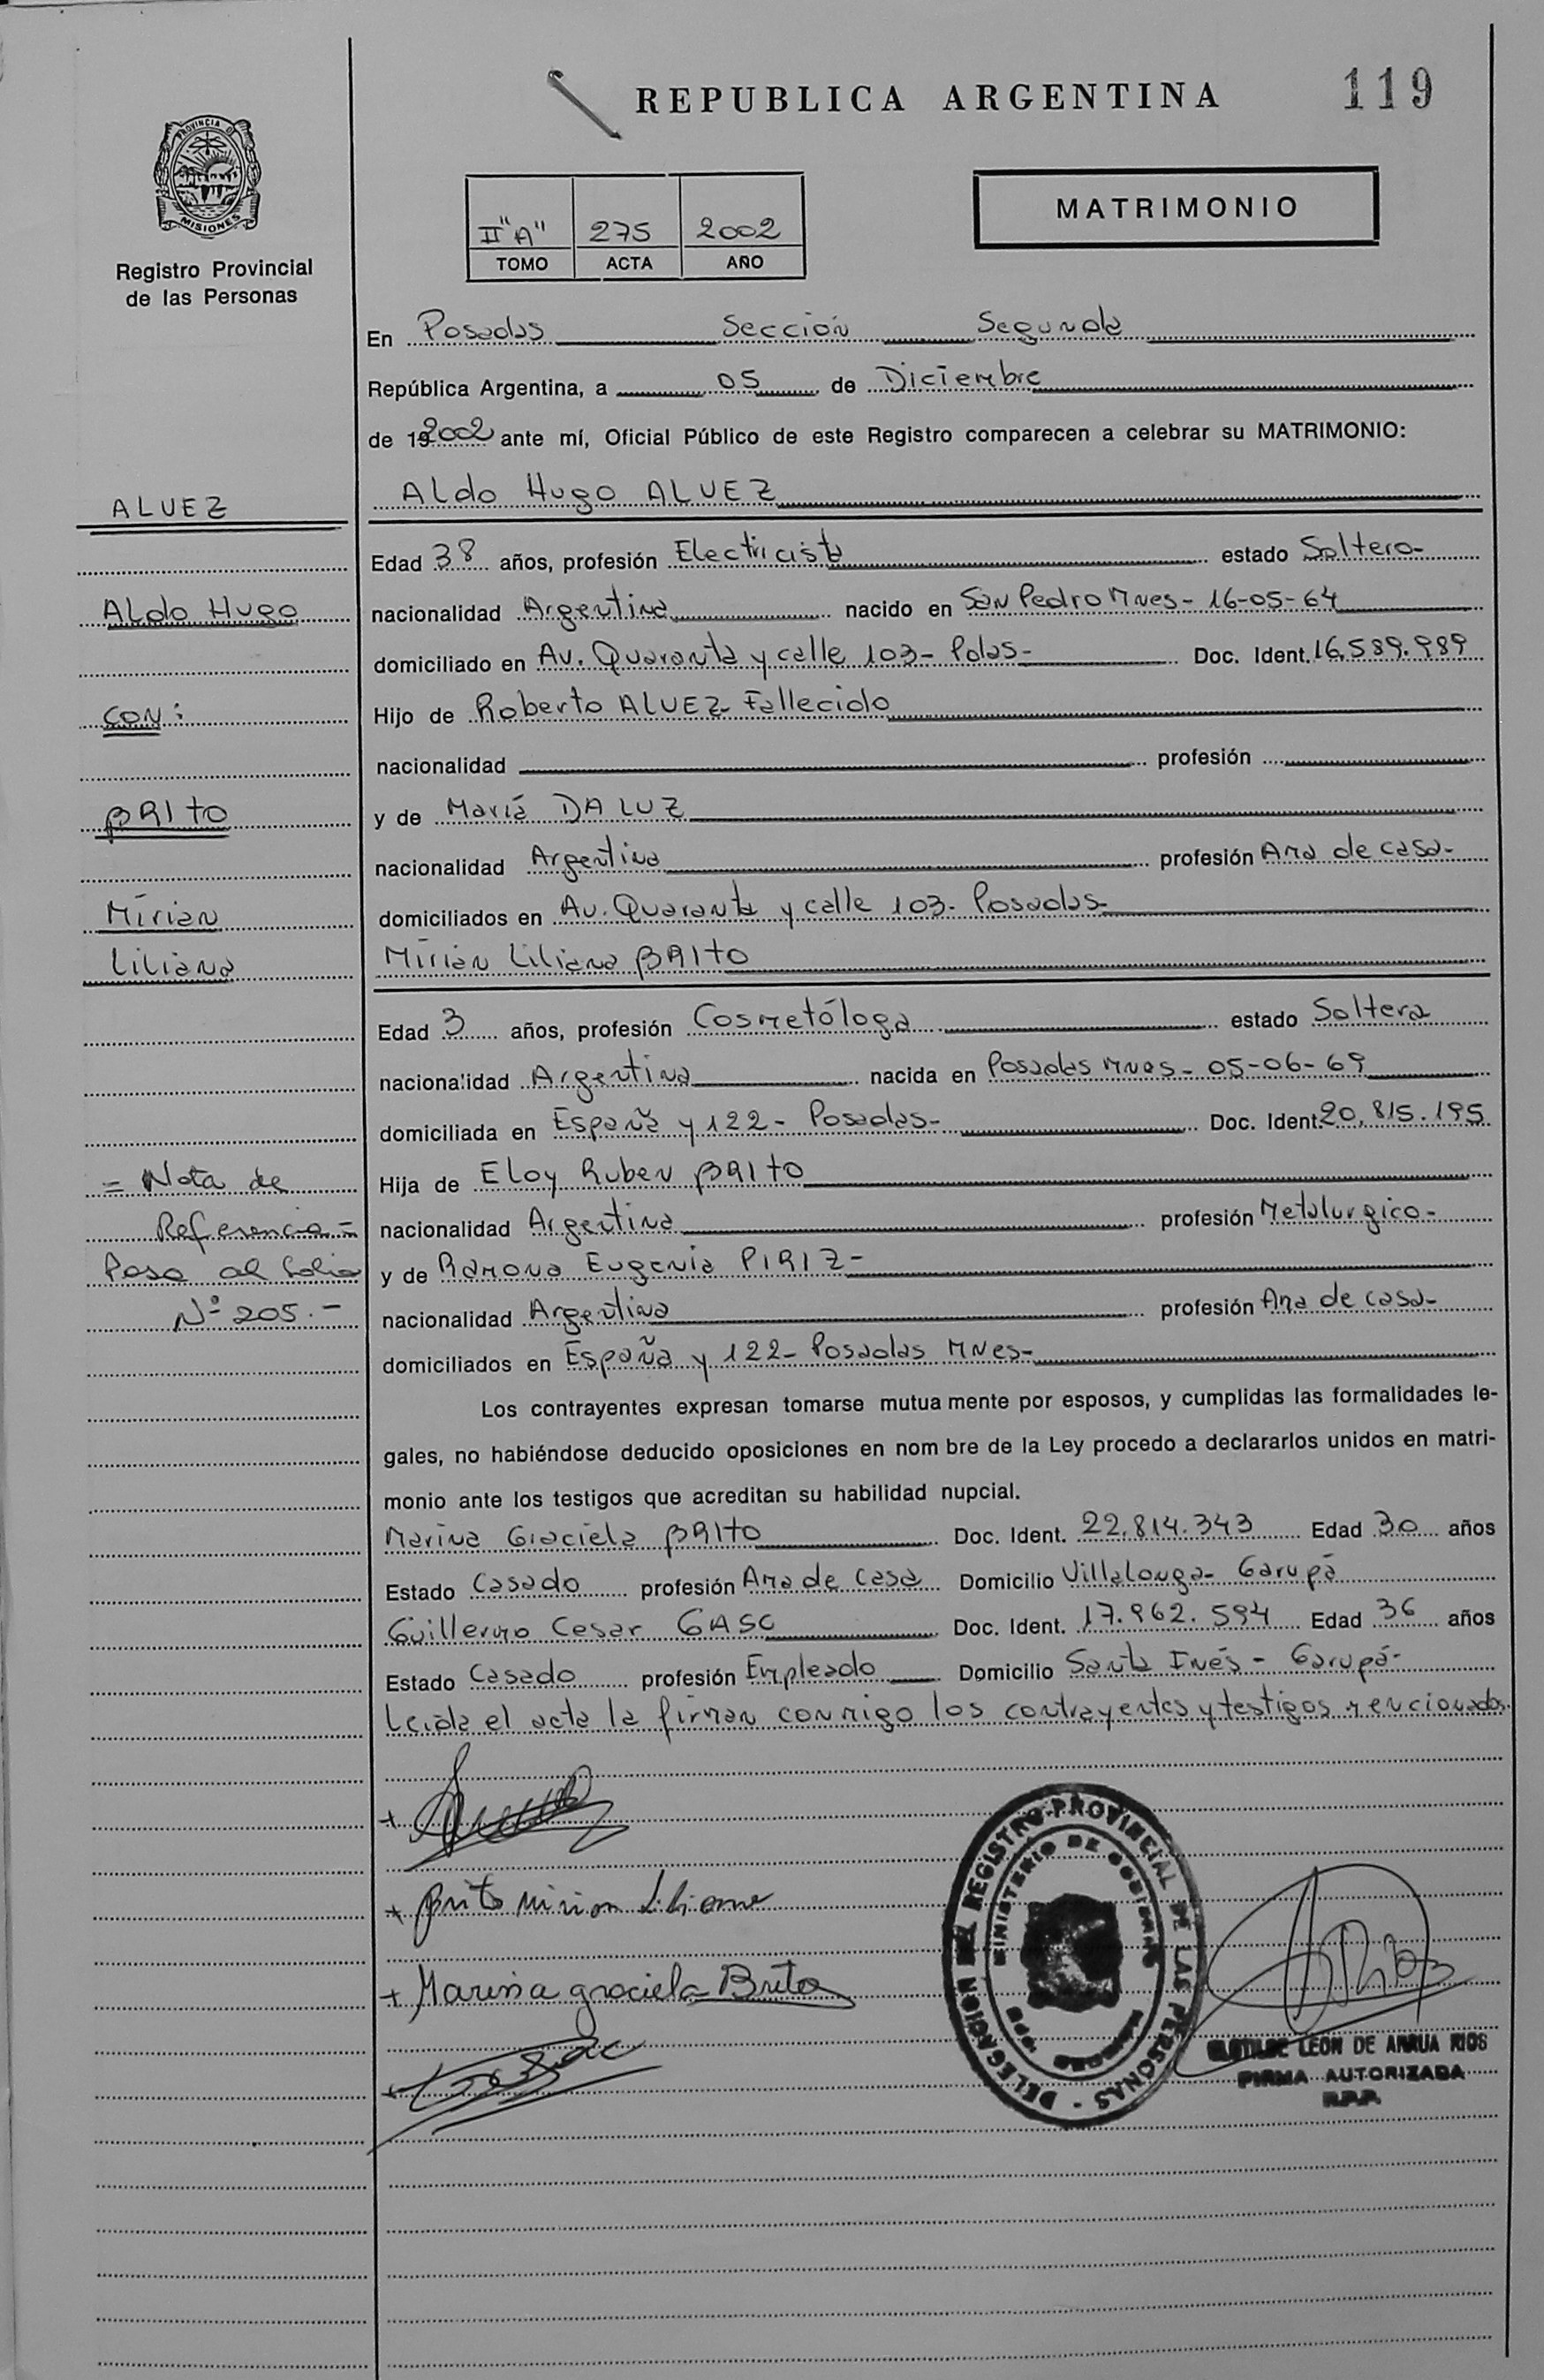 REPUBLICA ARGENTINA
119
PROVINCIA D
MISIONES
Registro Provincial
de las Personas
II "A" 275 2002
TOMO ACTA AÑO
MATRIMONIO
En Posadas Sección Segunda
República Argentina, a 05 de Diciembre
de 192002 ante mí, Oficial Público de este Registro comparecen a celebrar su MATRIMONIO:
ALUEZ
Aldo Hugo ALUEZ
Edad 38 años, profesión Electricista estado Soltero-
Aldo Hugo
nacionalidad Argentina nacido en San Pedro Mnes- 16-05-64
domiciliado en Av. Quaranta y calle 103- Pdas- Doc. Ident. 16.589.989
CON:
Hijo de Roberto ALUEZ- Fallecido
nacionalidad profesión
BRITO
y de María DA LUZ
nacionalidad Argentina profesión Ama de casa-
Mírian
domiciliados en Av. Quaranta y calle 103- Posadas-
Liliana
Mírian Liliana BRITO
Edad 3 años, profesión Cosmetóloga estado Soltera
nacionalidad Argentina nacida en Posadas Mnes- 05-06-69
domiciliada en España y 122- Posadas- Doc. Ident. 20.815.195
= Nota de
Referencia =
Pasa al folio
Nº 205.-
Hija de Eloy Ruben BRITO
nacionalidad Argentina profesión Metalurgico-
y de Ramona Eugenia PIRIZ-
nacionalidad Argentina profesión Ama de casa-
domiciliados en España y 122- Posadas Mnes-
Los contrayentes expresan tomarse mutua mente por esposos, y cumplidas las formalidades le-
gales, no habiéndose deducido oposiciones en nom bre de la Ley procedo a declararlos unidos en matri-
monio ante los testigos que acreditan su habilidad nupcial.
Marina Graciela BRITO Doc. Ident. 22.814.343 Edad 30 años
Estado Casado profesión Ama de Casa Domicilio Villalonga- Garupá
Guillermo Cesar GASC Doc. Ident. 17.962.594 Edad 36 años
Estado Casado profesión Empleado Domicilio Santa Inés - Garupá-
Leida el acta la firman conmigo los contrayentes y testigos mencionados.
+
+ Brito Mirian Liliana
+ Marina graciela Brito
+
DELEGACION DEL REGISTRO PROVINCIAL DE LAS PERSONAS -
MINISTERIO DE GOBIERNO
CLOTILDE LEON DE ARRUA RIOS
FIRMA AUTORIZADA
R.P.P.